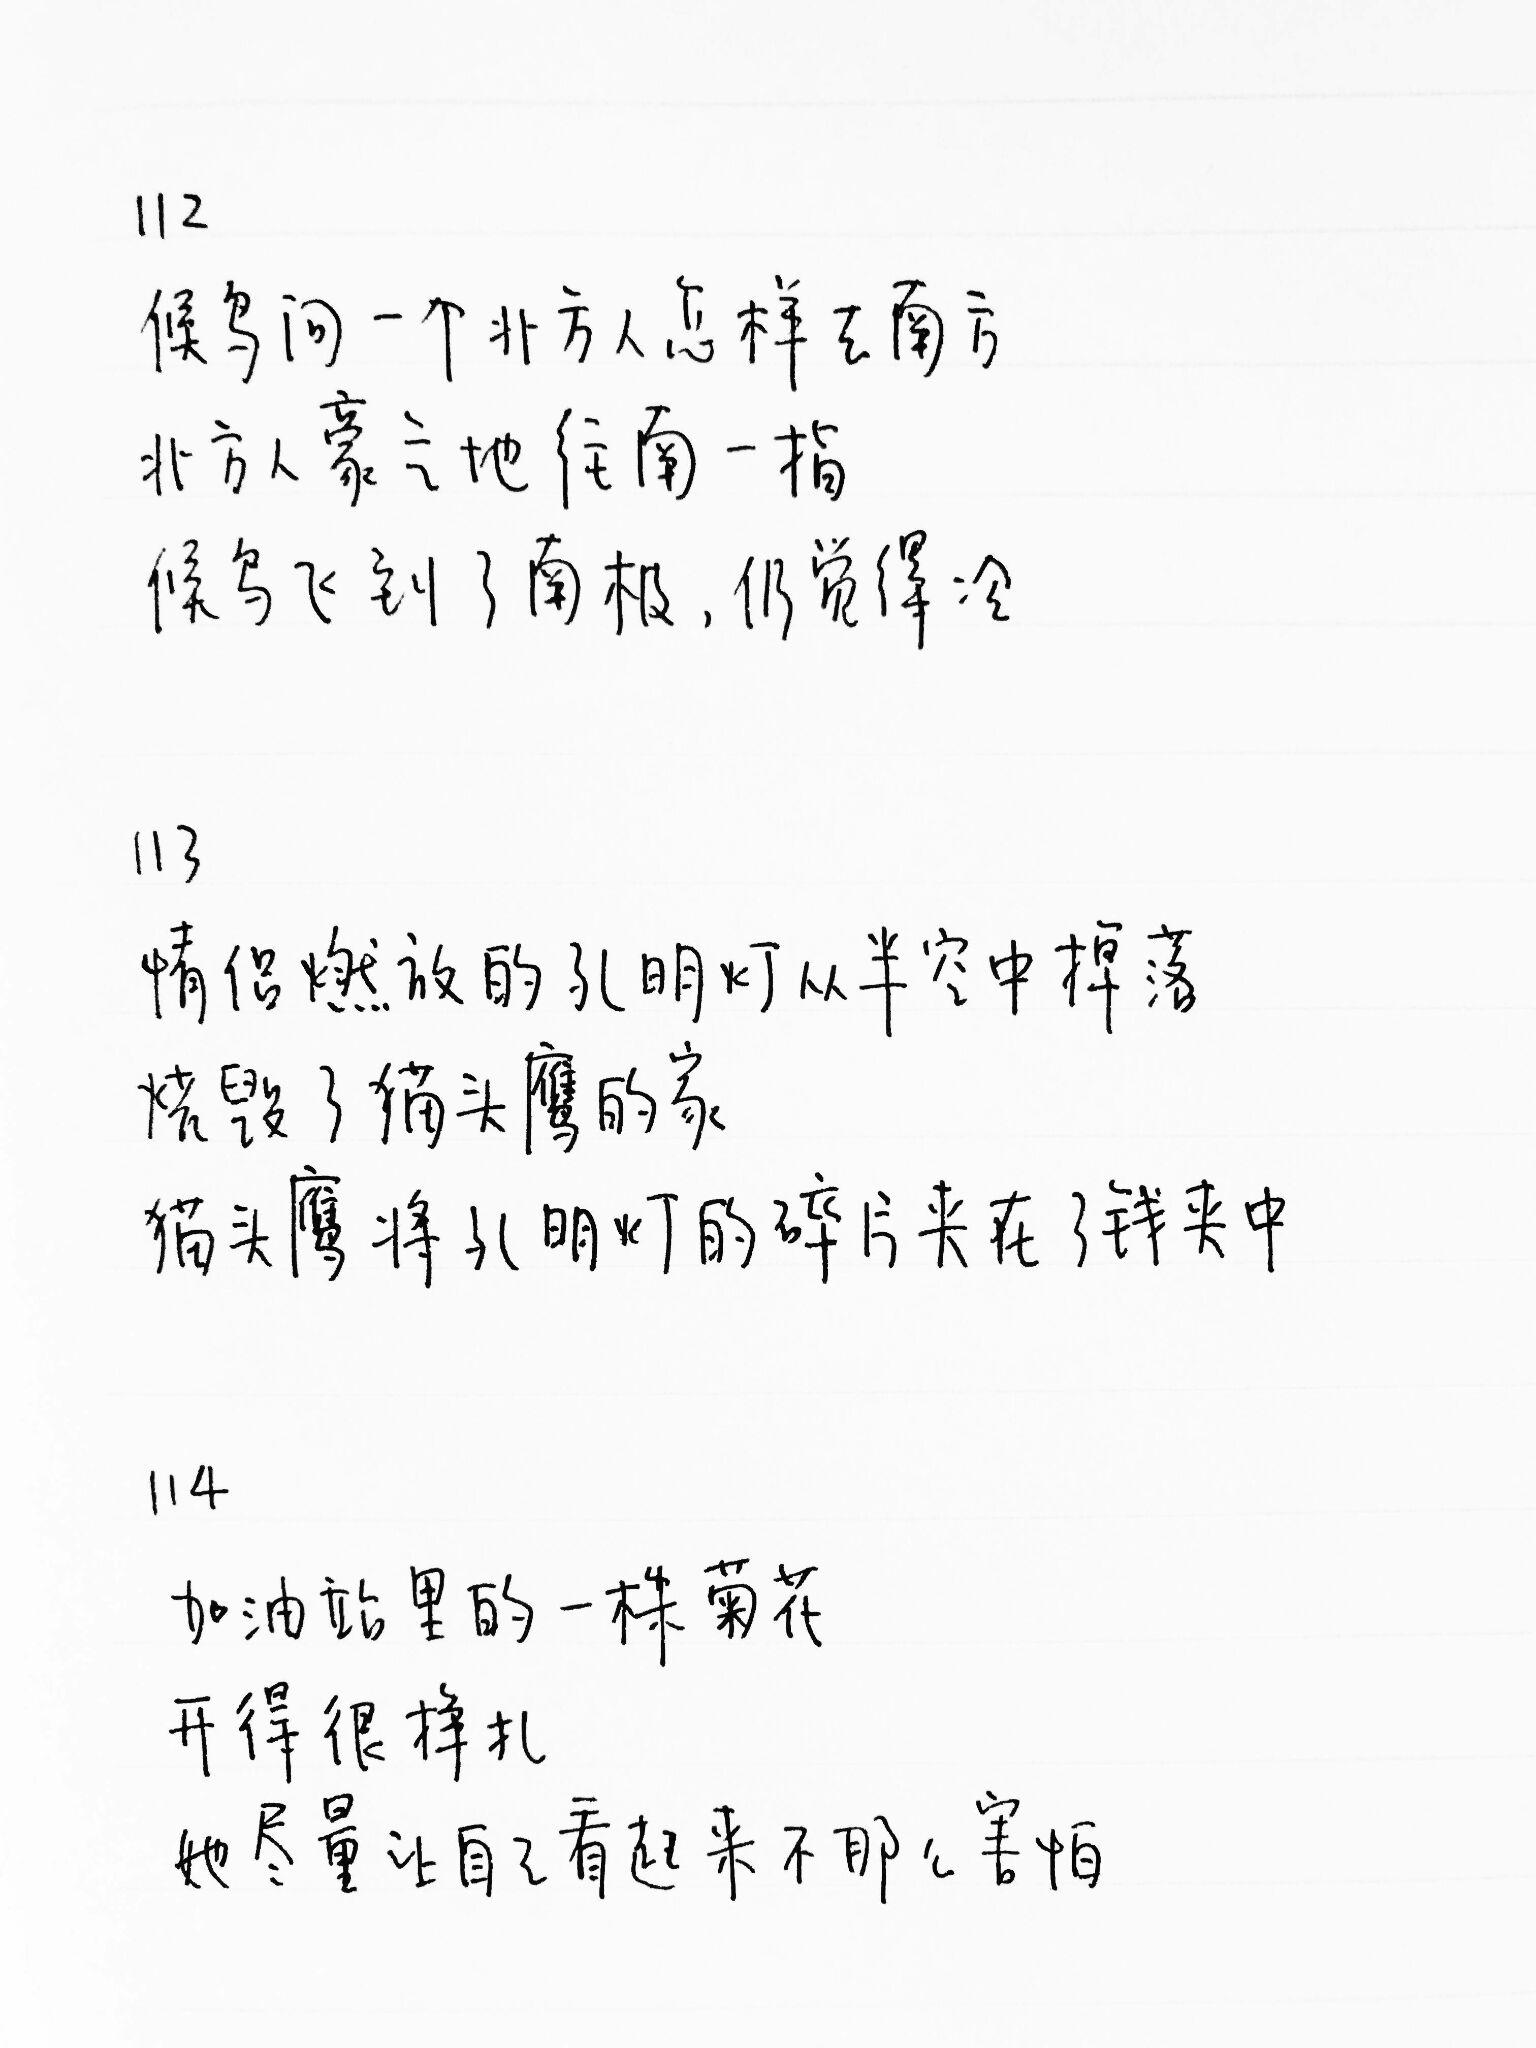 112
候鸟问一个北方人怎样去南方
北方人豪气地往南一指
候鸟飞到了南极，仍觉得冷
113
情侣燃放的孔明灯从半空中掉落
烧毁了猫头鹰的家
猫头鹰将孔明灯的碎片夹在了钱夹中
114
加油站里的一株菊花
开得很挣扎
她尽量让自己看起来不那么害怕